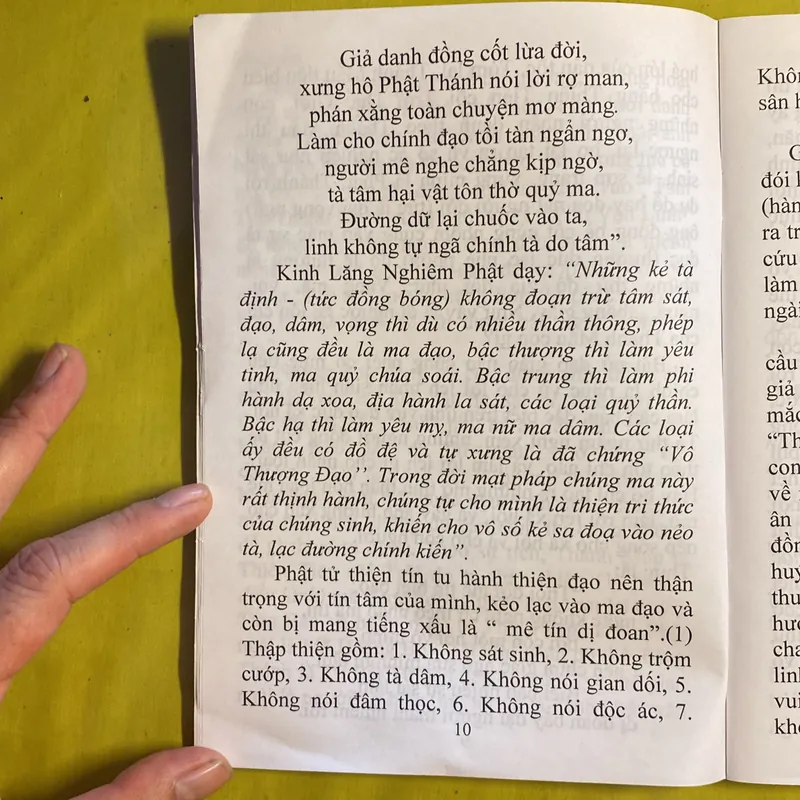 Giả danh đồng cốt lừa đời,
xưng hô Phật Thánh nói lời rợ man,
phán xằng toàn chuyện mơ màng.
Làm cho chính đạo tồi tàn ngẩn ngơ,
người mê nghe chẳng kịp ngờ,
tà tâm hại vật tôn thờ quỷ ma.
Đường dữ lại chuốc vào ta,
linh không tự ngã chính tà do tâm”.
Kinh Lăng Nghiêm Phật dạy: “Những kẻ tà
định - (tức đồng bóng) không đoạn trừ tâm sát,
đạo, dâm, vọng thì dù có nhiều thần thông, phép
lạ cũng đều là ma đạo, bậc thượng thì làm yêu
tinh, ma quỷ chúa soái. Bậc trung thì làm phi
hành dạ xoa, địa hành la sát, các loại quỷ thần.
Bậc hạ thì làm yêu mỵ, ma nữ ma dâm. Các loại
ấy đều có đồ đệ và tự xưng là đã chứng “Vô
Thượng Đạo’’. Trong đời mạt pháp chúng ma này
rất thịnh hành, chúng tự cho mình là thiện tri thức
của chúng sinh, khiến cho vô số kẻ sa đoạ vào nẻo
tà, lạc đường chính kiến”.
Phật tử thiện tín tu hành thiện đạo nên thận
trọng với tín tâm của mình, kẻo lạc vào ma đạo và
còn bị mang tiếng xấu là “ mê tín dị đoan”.(1)
Thập thiện gồm: 1. Không sát sinh, 2. Không trộm
cướp, 3. Không tà dâm, 4. Không nói gian dối, 5.
Không nói đâm thọc, 6. Không nói độc ác, 7.
10
sân h
đói l
(hàn
ra tr
cứu
làm
ngài
cầu
giả
mắc
“Th
con
về
ân
đồn
huy
thu
hươ
cha
linh
vui
khô